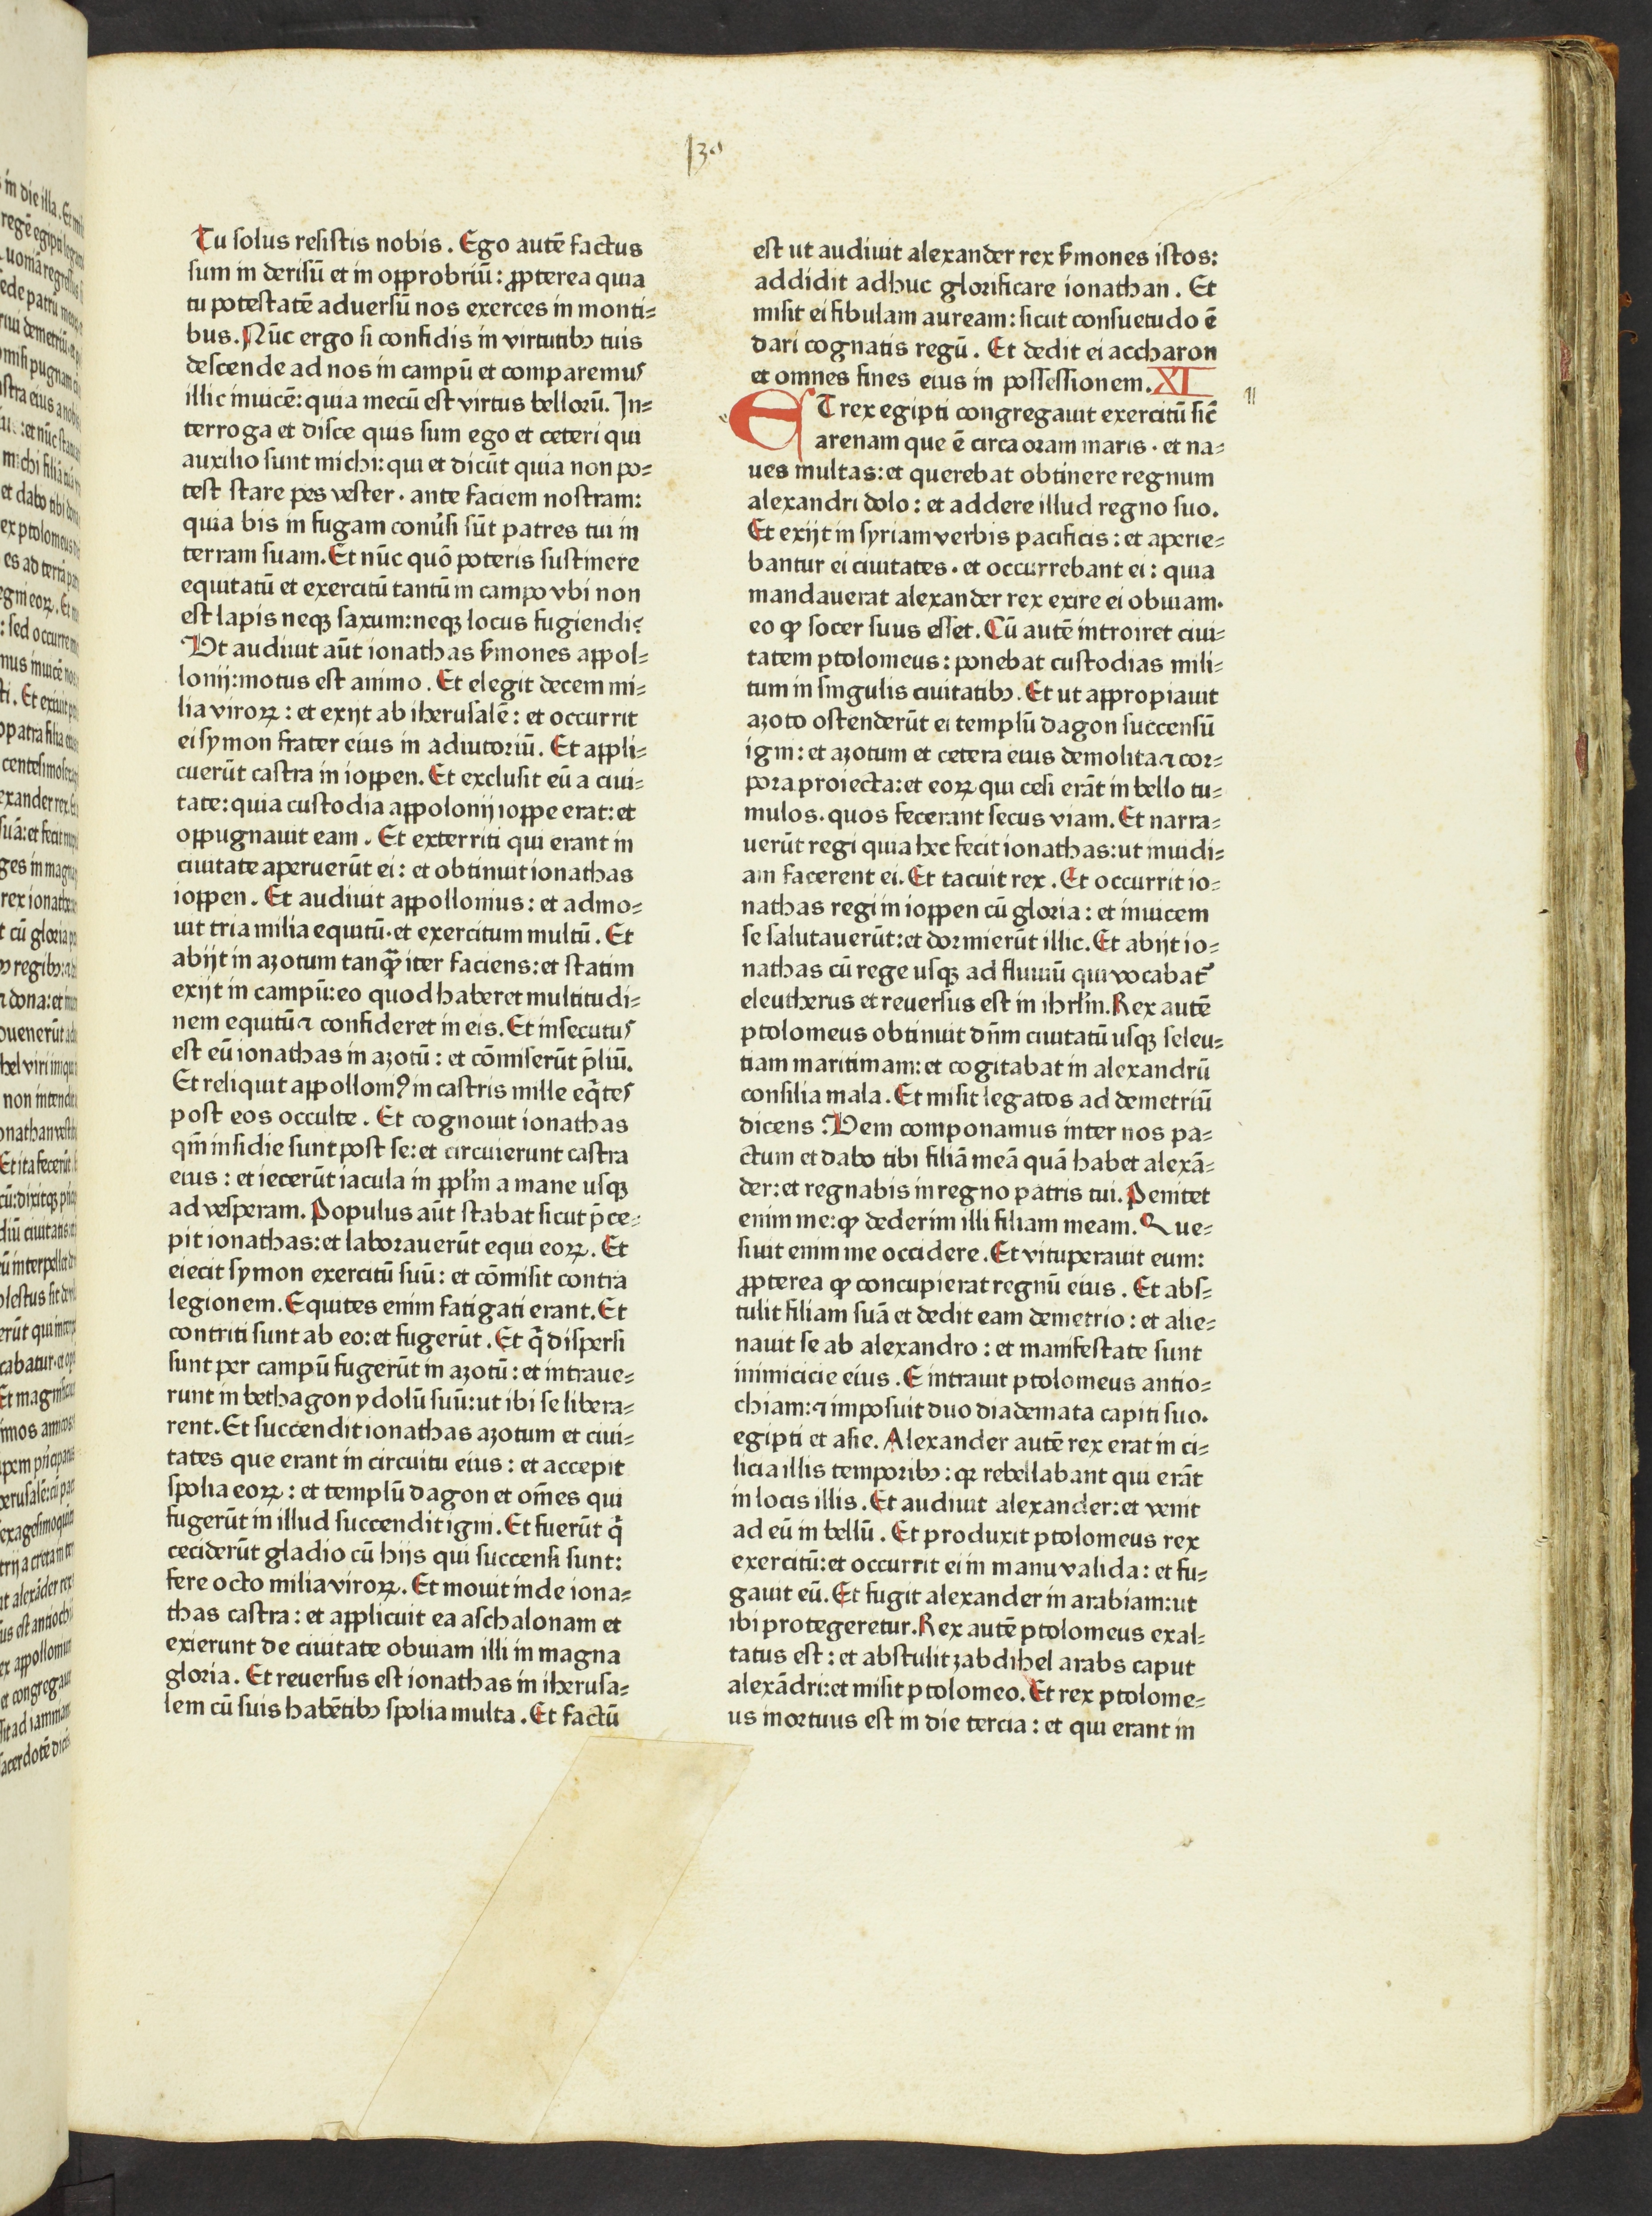 130
Tu solus resistis nobis. Ego autē factus
sum in derisū et in opprobriū: ꝓpterea quia
tu potestatē adversū nos exerces in monti⸗
bus. Nūc ergo si confidis in virtutibꝫ tuis
descende ad nos in campū et comparemus
illic invicē: quia mecū est virtus bellorū. In⸗
terroga et disce quis sum ego et ceteri qui
auxilio sunt michi: qui et dicūt quia non po⸗
test stare pes vester · ante faciem nostram:
quia bis in fugam conv̓si sūt patres tui in
terram suam. Et nūc quō poteris sustinere
equitatū et exercitū tantū in campo vbi non
est lapis neqꝫ saxum: neqꝫ locus fugiendi?
Ut audiuit aūt ionathas ẜmones appol⸗
lonij: motus est animo. Et elegit decem mi⸗
lia viroꝝ: et exijt ab iherusalē: et occurrit
ei symon frater eius in adiutoriū. Et appli⸗
cuerūt castra in ioppen. Et exclusit eū a ciui⸗
tate: quia custodia appolonij ioppe erat: et
oppugnauit eam. Et exterriti qui erant in
ciuitate aperuerūt ei: et obtinuit ionathas
ioppen. Et audiuit appollonius: et admo⸗
uit tria milia equitū · et exercitum multū. Et
abijt in azotum tanꝙ̄ iter faciens: et statim
exijt in campū: eo quod haberet multitudi⸗
nem equitū ⁊ confideret in eis. Et insecutus
est eū ionathas in azotū: et cōmiserūt p̄liū.
Et reliquit appolloniꝰ in castris mille eq̄tes
post eos occulte. Et cognouit ionathas
qm̄ insidie sunt post se: et circuierunt castra
eius: et iecerūt iacula in ppl̓m a mane usqꝫ
ad vesperam. Populus aūt stabat sicut p̄ce⸗
pit ionathas: et laborauerūt equi eoꝝ. Et
eiecit symon exercitū suū: et cōmisit contra
legionem. Equites enim fatigati erant. Et
contriti sunt ab eo: et fugerūt. Et q̄ dispersi
sunt per campū fugerūt in azotū: et intraue⸗
runt in bethagon ydolū suū: ut ibi se libera⸗
rent. Et succendit ionathas azotum et ciui⸗
tates que erant in circuitu eius: et accepit
spolia eoꝝ: et templū dagon et om̄es qui
fugerūt in illud succendit igni. Et fuerūt q̄
ceciderūt gladio cū hijs qui succensi sunt:
fere octo milia viroꝝ. Et mouit inde iona⸗
thas castra: et applicuit ea aschalonam et
exierunt de ciuitate obuiam illi in magna
gloria. Et reuersus est ionathas in iherusa⸗
lem cū suis habētibꝫ spolia multa. Et factū
est ut audiuit alexander rex ẜmones istos:
addidit adhuc glorificare ionathan. Et
misit ei fibulam auream: sicut consuetudo ē
dari cognatis regū. Et dedit ei accharon
et omnes fines eius in possessionem. XI
ET rex egipti congregauit exercitū sic̄
arenam que ē circa oram maris · et na⸗
ues multas: et querebat obtinere regnum
alexandri dolo: et addere illud regno suo.
Et exijt in syriam verbis pacificis: et aperie⸗
bantur ei ciuitates · et occurrebant ei: quia
mandauerat alexander rex exire ei obuiam.
eo ꝙ socer suus esset. Cū autē introiret ciui⸗
tatem ptolomeus: ponebat custodias mili⸗
tum in singulis ciuitatibꝫ. Et ut appropiauit
azoto ostenderūt ei templū dagon succensū
igni: et azotum et cetera eius demolita ⁊ cor⸗
pora proiecta: et eoꝝ qui cesi erāt in bello tu⸗
mulos. quos fecerant secus viam. Et narra⸗
uerūt regi quia hec fecit ionathas: ut inuidi⸗
am facerent ei. Et tacuit rex. Et occurrit io⸗
nathas regi in ioppen cū gloria: et inuicem
se salutauerūt: et dormierūt illic. Et abijt io⸗
nathas cū rege usqꝫ ad fluuiū qui vocabat᷑
eleutherus et reuersus est in ihrl̓m. Rex autē
ptolomeus obtinuit dn̄m ciuitatū usqꝫ seleu⸗
tiam maritimam: et cogitabat in alexandrū
consilia mala. Et misit legatos ad demetriū
dicens: Vem componamus inter nos pa⸗
ctum et dabo tibi filiā meā quā habet alexā⸗
der: et regnabis in regno patris tui. Penitet
enim me: ꝙ dederim illi filiam meam. Que⸗
siuit enim me occidere. Et vituperauit eum:
ꝓpterea ꝙ concupierat regnū eius. Et abs⸗
tulit filiam suā et dedit eam demetrio: et alie⸗
nauit se ab alexandro: et manifestate sunt
inimicicie eius. E intrauit ptolomeus antio⸗
chiam: ⁊ imposuit duo diademata capiti suo.
egipti et asie. Alexander autē rex erat in ci⸗
licia illis temporibꝫ: qꝛ rebellabant qui erāt
in locis illis. Et audiuit alexander: et venit
ad eū in bellū. Et produxit ptolomeus rex
exercitū: et occurrit ei in manu valida: et fu⸗
gauit eū. Et fugit alexander in arabiam: ut
ibi protegeretur. Rex autē ptolomeus exal⸗
tatus est: et abstulit zabdihel arabs caput
alexādri: et misit ptolomeo. Et rex ptolome⸗
us mortuus est in die tercia: et qui erant in